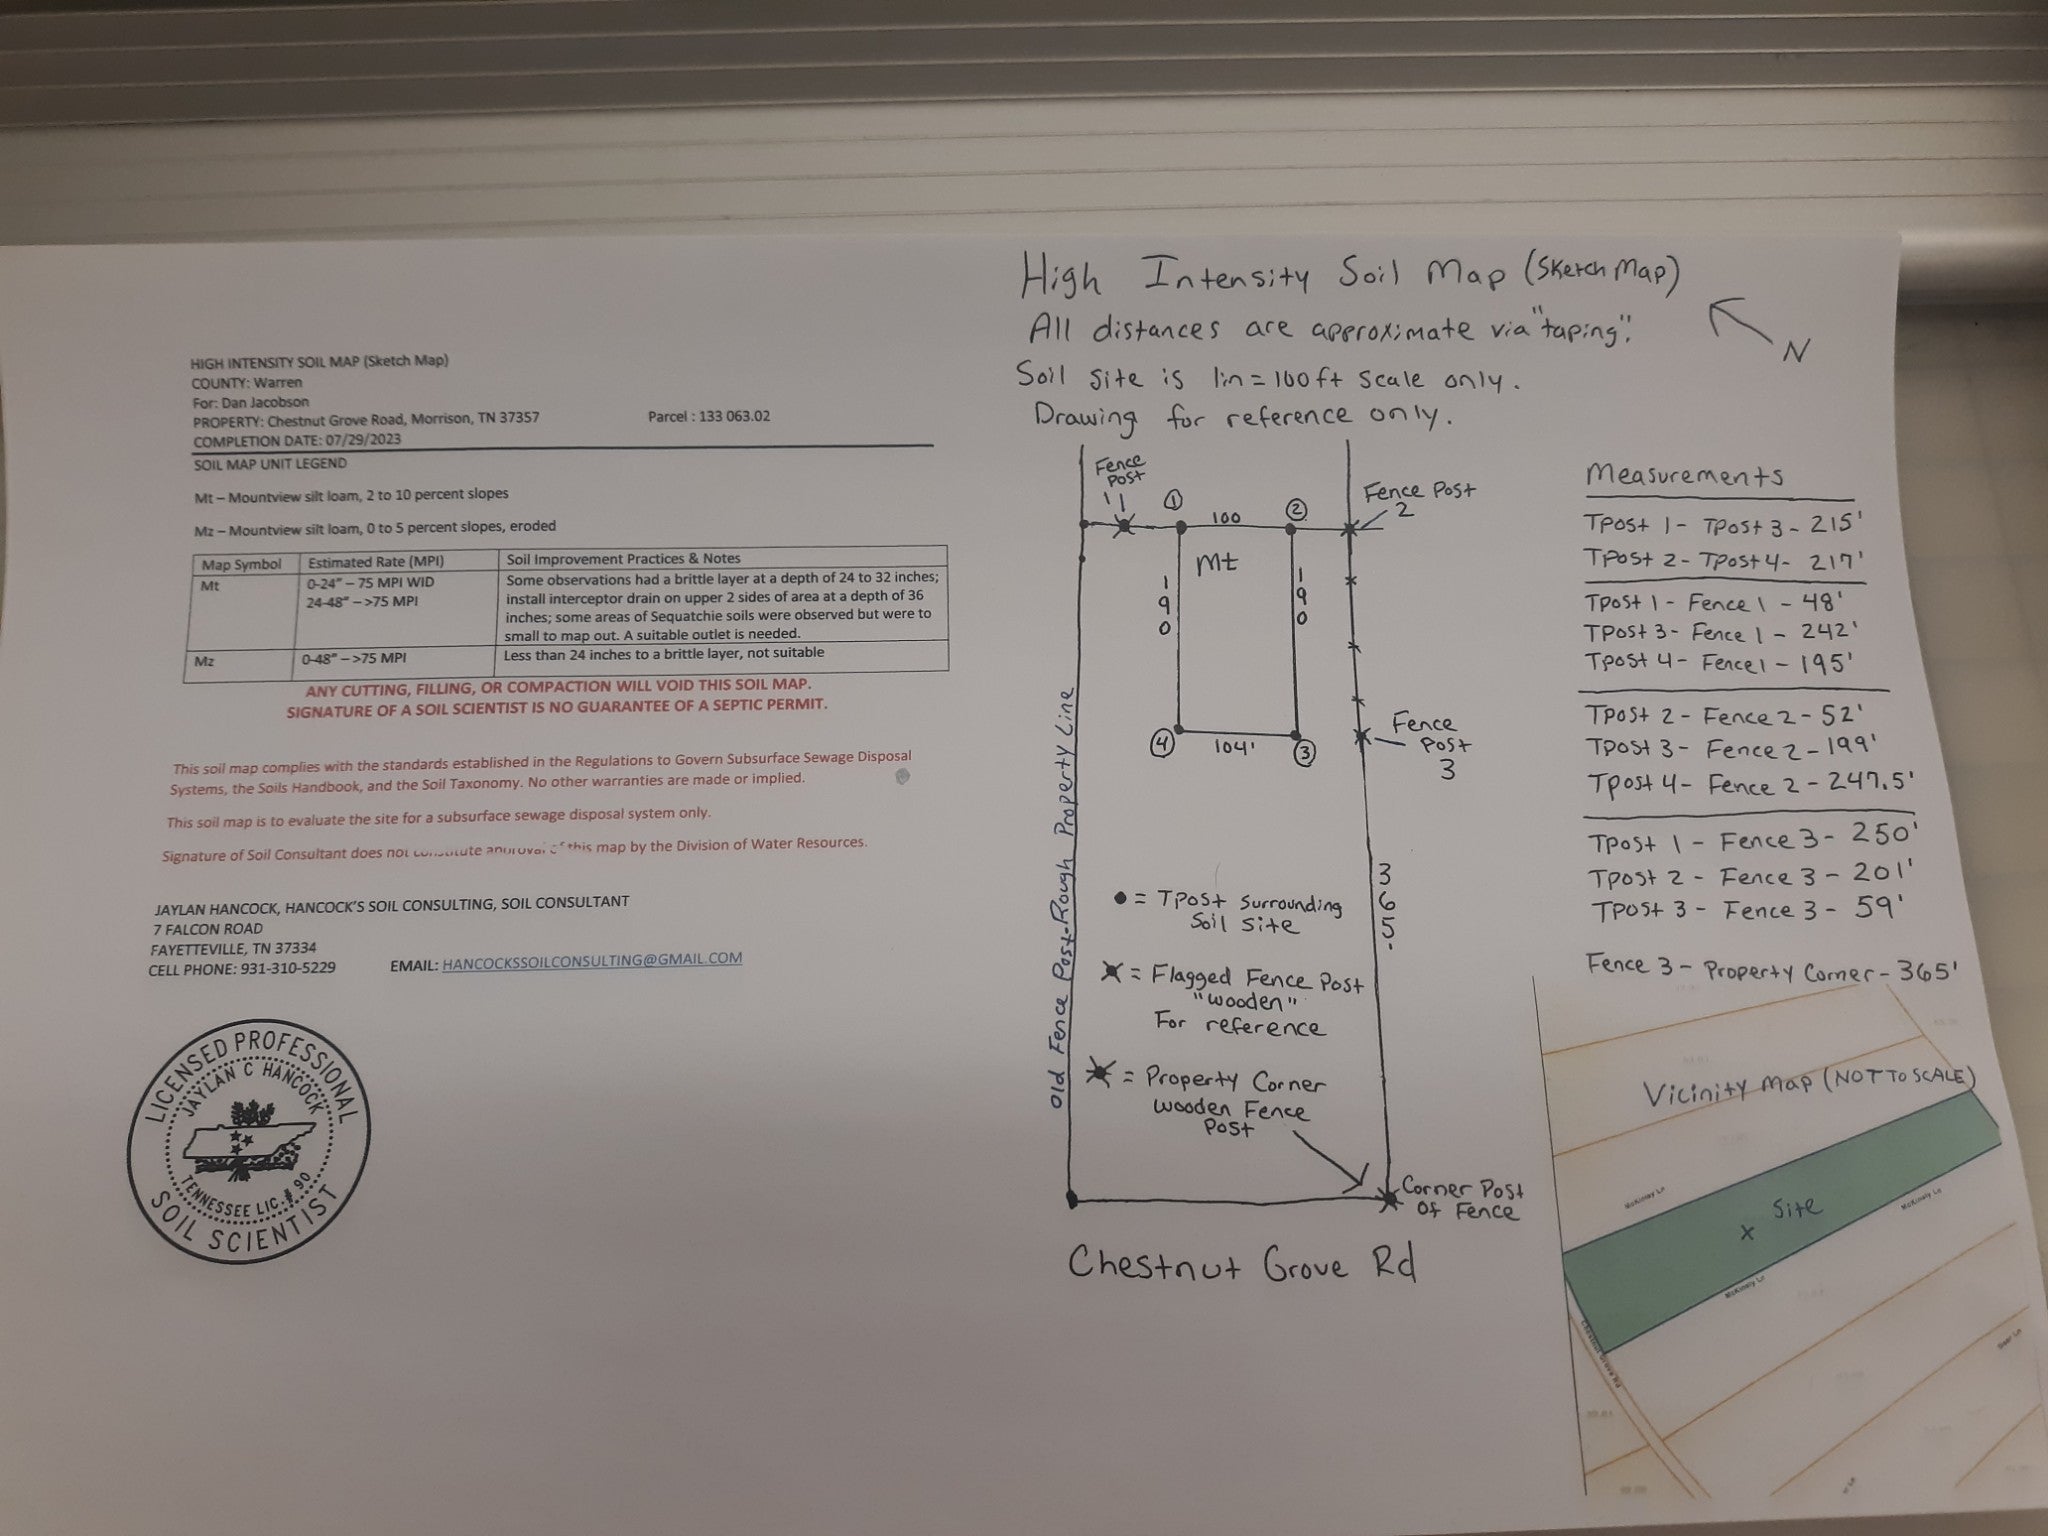 HIGH INTENSITY SOIL MAP (Sketch Map)
COUNTY: Warren
For: Dan Jacobson
PROPERTY: Chestnut Grove Road, Morrison, TN 37357 Parcel : 133 063.02
COMPLETION DATE: 07/29/2023
SOIL MAP UNIT LEGEND
Mt – Mountview silt loam, 2 to 10 percent slopes
Mz – Mountview silt loam, 0 to 5 percent slopes, eroded
Map Symbol Estimated Rate (MPI) Soil Improvement Practices & Notes
Mt 0-24" – 75 MPI WID Some observations had a brittle layer at a depth of 24 to 32 inches;
24-48" – >75 MPI install interceptor drain on upper 2 sides of area at a depth of 36
inches; some areas of Sequatchie soils were observed but were to
small to map out. A suitable outlet is needed.
Mz 0-48" – >75 MPI Less than 24 inches to a brittle layer, not suitable
ANY CUTTING, FILLING, OR COMPACTION WILL VOID THIS SOIL MAP.
SIGNATURE OF A SOIL SCIENTIST IS NO GUARANTEE OF A SEPTIC PERMIT.
This soil map complies with the standards established in the Regulations to Govern Subsurface Sewage Disposal
Systems, the Soils Handbook, and the Soil Taxonomy. No other warranties are made or implied.
This soil map is to evaluate the site for a subsurface sewage disposal system only.
Signature of Soil Consultant does not constitute approval of this map by the Division of Water Resources.
JAYLAN HANCOCK, HANCOCK'S SOIL CONSULTING, SOIL CONSULTANT
7 FALCON ROAD
FAYETTEVILLE, TN 37334
CELL PHONE: 931-310-5229 EMAIL: HANCOCKSSOILCONSULTING@GMAIL.COM
LICENSED PROFESSIONAL
JAYLAN C HANCOCK
TENNESSEE LIC. # 90
SOIL SCIENTIST
High Intensity Soil Map (Sketch Map)
All distances are approximate via "taping".
Soil site is 1in = 100ft scale only.
Drawing for reference only.
N
Fence
Post
1
1
100
2
Fence Post
2
Mt
190
190
4
104'
3
Fence
Post
3
Old Fence Post-Rough Property Line
365'
= Tpost surrounding
Soil site
= Flagged Fence Post
"wooden"
For reference
= Property Corner
Wooden Fence
Post
Corner Post
Of Fence
Chestnut Grove Rd
Measurements
Tpost 1 - Tpost 3 - 215'
Tpost 2 - Tpost 4 - 217'
Tpost 1 - Fence 1 - 48'
Tpost 3 - Fence 1 - 242'
Tpost 4 - Fence 1 - 195'
Tpost 2 - Fence 2 - 52'
Tpost 3 - Fence 2 - 199'
Tpost 4 - Fence 2 - 247.5'
Tpost 1 - Fence 3 - 250'
Tpost 2 - Fence 3 - 201'
Tpost 3 - Fence 3 - 59'
Fence 3 - Property Corner - 365'
Vicinity Map (NOT TO SCALE)
McKinsly Ln
x Site
McKinsly Ln
McKinsly Ln
Chestnut Grove Rd